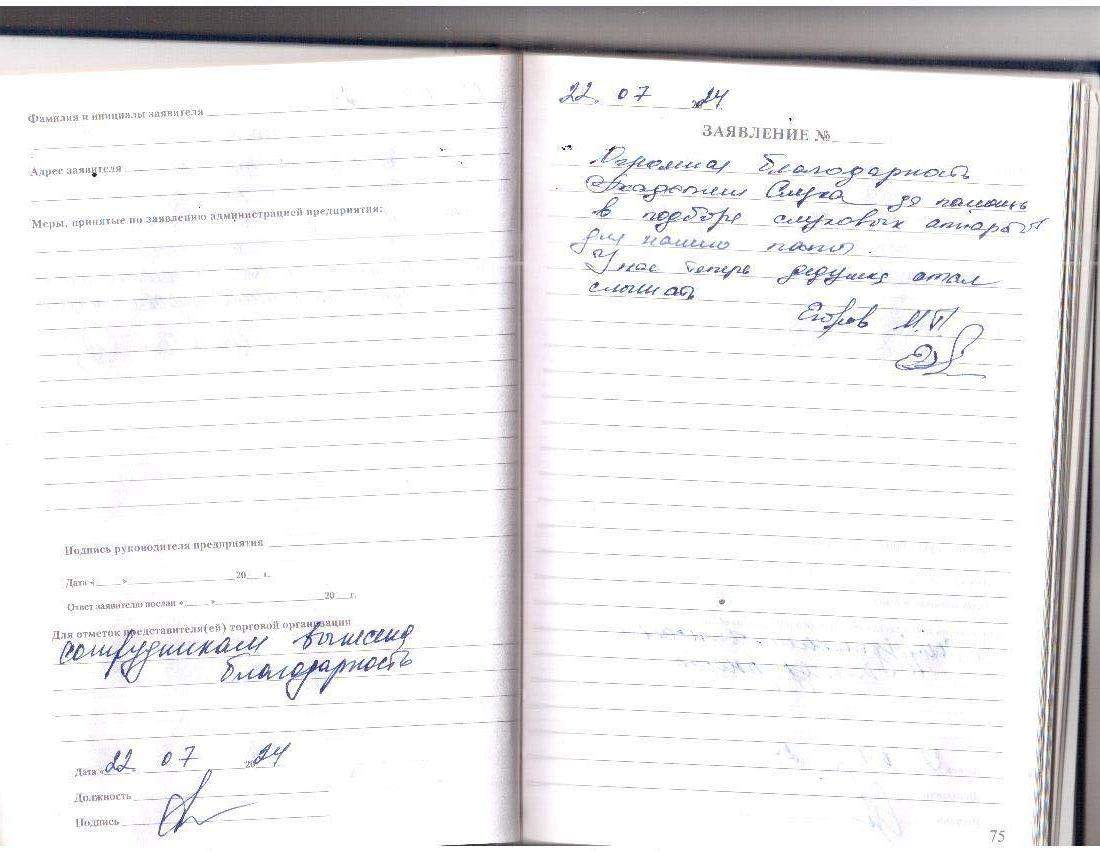 Фамилия и инициалы заявителя
Адрес заявителя
Меры, принятые по заявлению администрацией предприятия:
Подпись руководителя предприятия
Дата «____» ____ 20__ г.
Ответ заявителю послан «____» ____ 20__ г.
Для отметок представителя(ей) торговой организации
сотрудникам вынесена
благодарность
Дата «22. 07 2024
Должность
Подпись
22. 07 2024
ЗАЯВЛЕНИЕ №
Огромная благодарность
Академии Слуха за помощь
в подборе слуховых аппаратов
для нашего папы.
У нас теперь дедушка стал
слышать
Егоров М.П
75